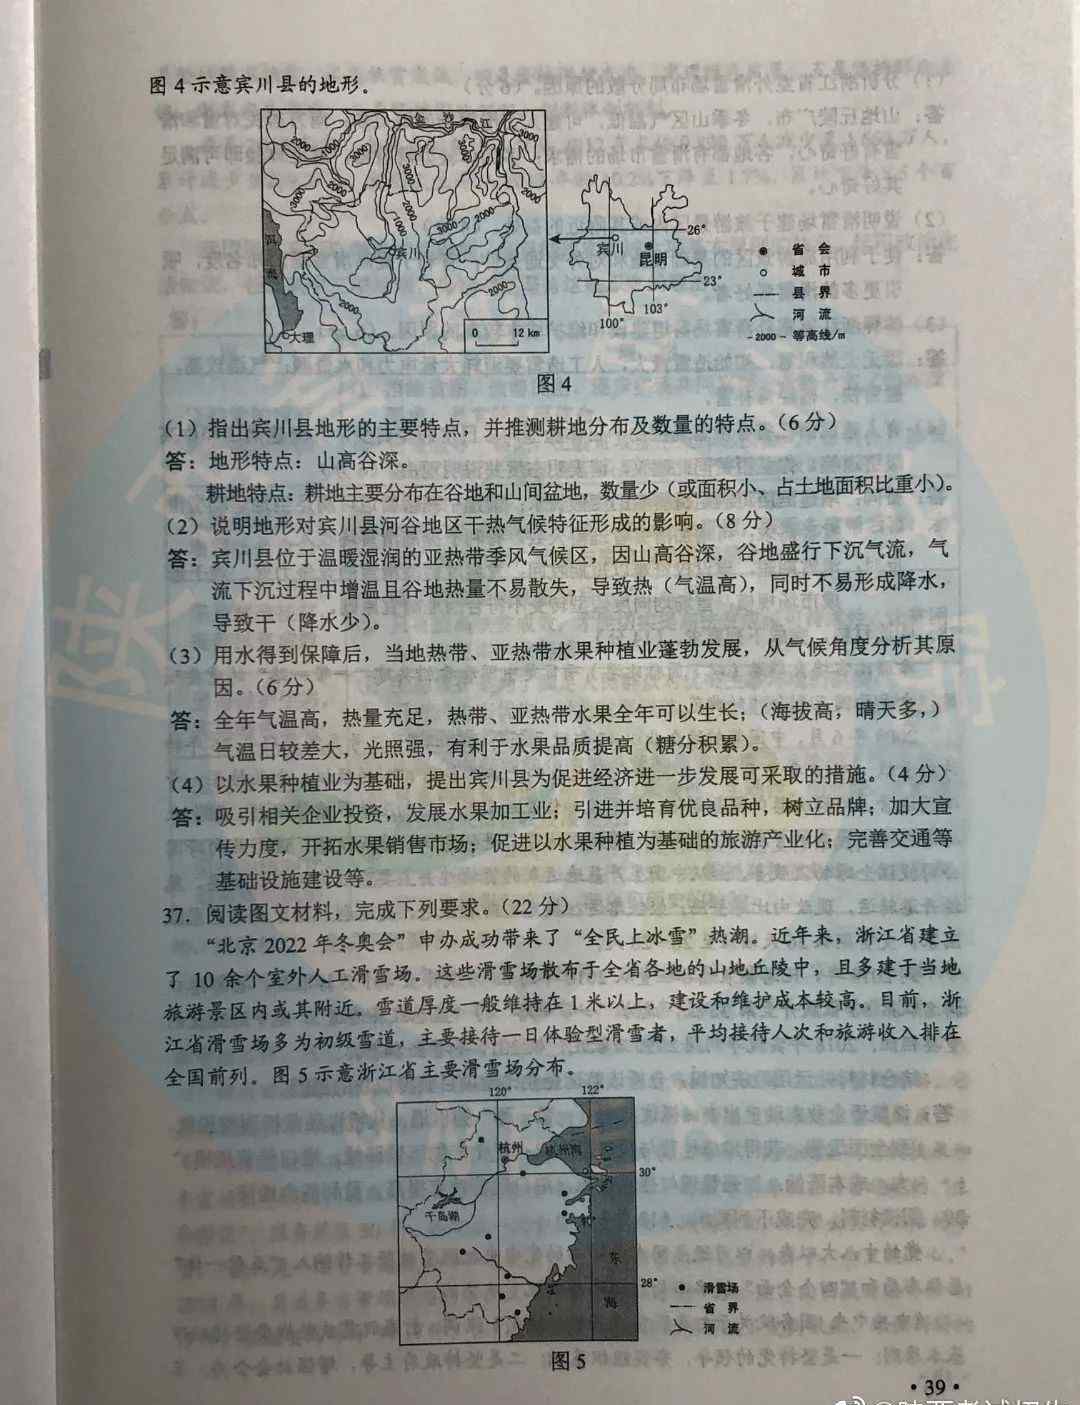 图 4 示意宾川县的地形。
金 沙 江
3000
3000
2000
1000
3000
3000
2000
2000
1000
2000
3000
2000
宾川
2000
2000
洱
海
大理
0 12 km
26°
宾川
昆明
23°
103°
100°
省 会
城 市
县 界
河 流
-2000- 等高线/m
图 4
（1）指出宾川县地形的主要特点，并推测耕地分布及数量的特点。（6 分）
答：地形特点：山高谷深。
耕地特点：耕地主要分布在谷地和山间盆地，数量少（或面积小、占土地面积比重小）。
（2）说明地形对宾川县河谷地区干热气候特征形成的影响。（8 分）
答：宾川县位于温暖湿润的亚热带季风气候区，因山高谷深，谷地盛行下沉气流，气
流下沉过程中增温且谷地热量不易散失，导致热（气温高），同时不易形成降水，
导致干（降水少）。
（3）用水得到保障后，当地热带、亚热带水果种植业蓬勃发展，从气候角度分析其原
因。（6 分）
答：全年气温高，热量充足，热带、亚热带水果全年可以生长；（海拔高，晴天多，）
气温日较差大，光照强，有利于水果品质提高（糖分积累）。
（4）以水果种植业为基础，提出宾川县为促进经济进一步发展可采取的措施。（4 分）
答：吸引相关企业投资，发展水果加工业；引进并培育优良品种，树立品牌；加大宣
传力度，开拓水果销售市场；促进以水果种植为基础的旅游产业化；完善交通等
基础设施建设等。
37．阅读图文材料，完成下列要求。（22 分）
“北京 2022 年冬奥会”申办成功带来了“全民上冰雪”热潮。近年来，浙江省建立
了 10 余个室外人工滑雪场。这些滑雪场散布于全省各地的山地丘陵中，且多建于当地
旅游景区内或其附近。雪道厚度一般维持在 1 米以上，建设和维护成本较高。目前，浙
江省滑雪场多为初级雪道，主要接待一日体验型滑雪者，平均接待人次和旅游收入排在
全国前列。图 5 示意浙江省主要滑雪场分布。
120° 122°
杭州 杭州湾
30°
千岛湖
东
28°
海
滑雪场
省 界
河 流
图 5
· 39 ·